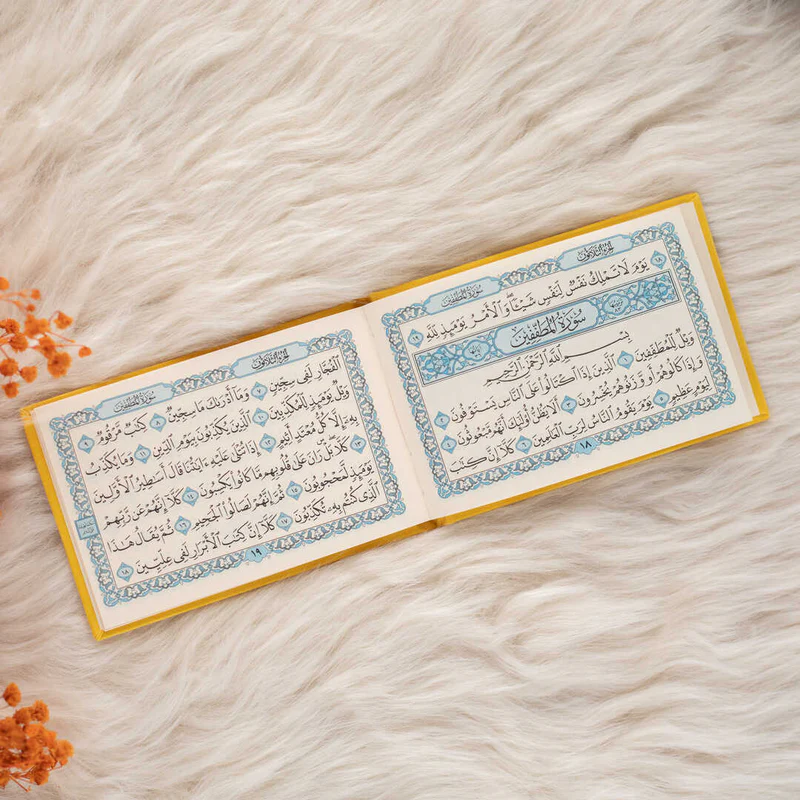 الجزء الثلاثون
سورة المطففين
١٨ يَوْمَ لَا تَمْلِكُ نَفْسٌ لِّنَفْسٍ شَيْـًٔا ۖ وَٱلْأَمْرُ يَوْمَئِذٍ لِّلَّهِ ١٩
سُورَةُ المُطَفِّفِينَ
بِسْمِ ٱللَّهِ ٱلرَّحْمَٰنِ ٱلرَّحِيمِ
وَيْلٌ لِّلْمُطَفِّفِينَ ١ ٱلَّذِينَ إِذَا ٱكْتَالُوا۟ عَلَى ٱلنَّاسِ يَسْتَوْفُونَ ٢
وَإِذَا كَالُوهُمْ أَو وَّزَنُوهُمْ يُخْسِرُونَ ٣ أَلَا يَظُنُّ أُو۟لَٰٓئِكَ أَنَّهُم مَّبْعُوثُونَ ٤
لِيَوْمٍ عَظِيمٍ ٥ يَوْمَ يَقُومُ ٱلنَّاسُ لِرَبِّ ٱلْعَٰلَمِينَ ٦ كَلَّآ إِنَّ كِتَٰبَ
١٨
الجزء الثلاثون
سورة المطففين
ٱلْفُجَّارِ لَفِى سِجِّينٍ ٧ وَمَآ أَدْرَىٰكَ مَا سِجِّينٌ ٨ كِتَٰبٌ مَّرْقُومٌ ٩
وَيْلٌ يَوْمَئِذٍ لِّلْمُكَذِّبِينَ ١٠ ٱلَّذِينَ يُكَذِّبُونَ بِيَوْمِ ٱلدِّينِ ١١ وَمَا يُكَذِّبُ
بِهِۦٓ إِلَّا كُلُّ مُعْتَدٍ أَثِيمٍ ١٢ إِذَا تُتْلَىٰ عَلَيْهِ ءَايَٰتُنَا قَالَ أَسَٰطِيرُ ٱلْأَوَّلِينَ
١٣ كَلَّا ۖ بَلْ رَانَ عَلَىٰ قُلُوبِهِم مَّا كَانُوا۟ يَكْسِبُونَ ١٤ كَلَّآ إِنَّهُمْ عَن رَّبِّهِمْ
يَوْمَئِذٍ لَّمَحْجُوبُونَ ١٥ ثُمَّ إِنَّهُمْ لَصَالُوا۟ ٱلْجَحِيمِ ١٦ ثُمَّ يُقَالُ هَٰذَا
ٱلَّذِى كُنتُم بِهِۦ تُكَذِّبُونَ ١٧ كَلَّآ إِنَّ كِتَٰبَ ٱلْأَبْرَارِ لَفِى عِلِّيِّينَ ١٨
١٩